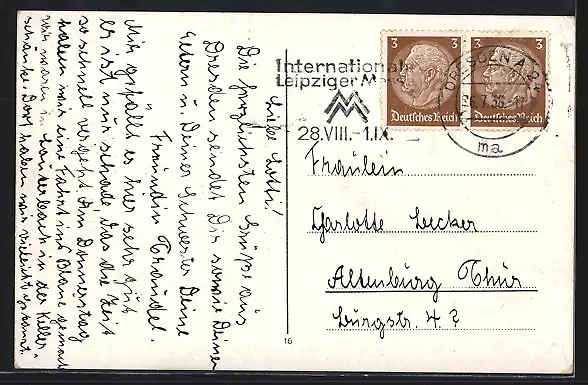 Liebe Lotti!
Die herzlichsten Grüße aus
Dresden sendet Dir sowie Deinen
Eltern u. Deiner Schwester Deine
Freundin Traudel.
Mir gefällt es hier sehr gut
es ist nur schade, das die Zeit
so schnell vergeht. Am Donnerstag
haben wir eine Fahrt ins Blaue gemacht
wir waren in Lauterbach in der Keller-
schänke. Dort haben wir vielleicht getanzt.
Internationale
Leipziger Messe
28.VIII.-1.IX.
3
3
Deutsches Reich
Deutsches Reich
DRESDEN A.
ma
Fräulein
Charlotte Becker
Altenburg Thür
Burgstr. 4
16